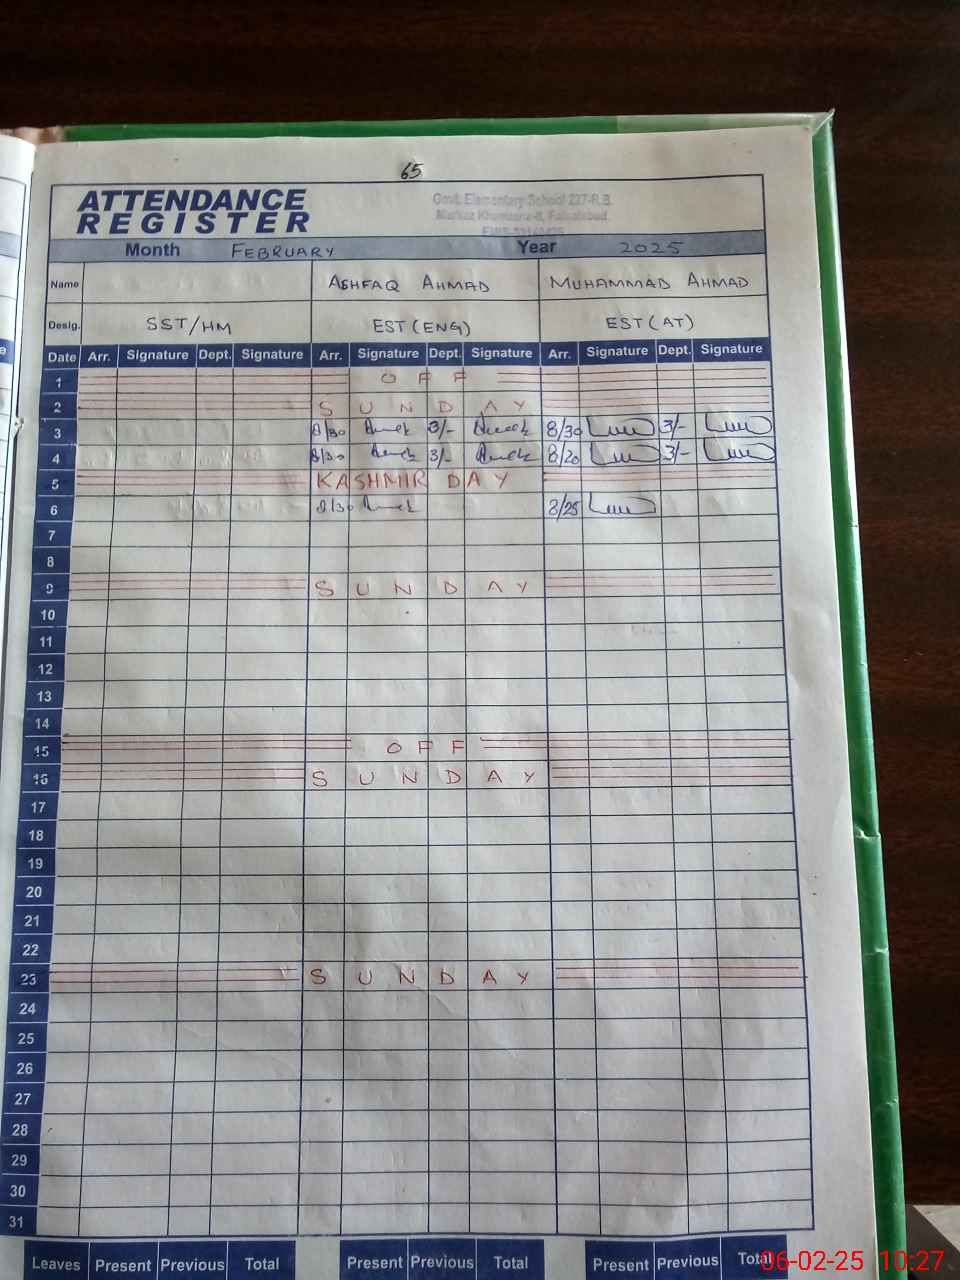 65
ATTENDANCE
REGISTER
Govt. Elementary School 237-R.B.
Markaz Khurrianwala-II, Faisalabad.
Month FEBRUARY Year 2025
Name ASHFAQ AHMAD MUHAMMAD AHMAD
Desig. SST/HM EST(ENG) EST(AT)
Date Arr. Signature Dept. Signature Arr. Signature Dept. Signature Arr. Signature Dept. Signature
1 OFF
2 SUNDAY
3 8/30 3/- 8/30 3/-
4 8/30 3/- 8/20 3/-
5 KASHMIR DAY
6 8/30 8/25
7
8
9 SUNDAY
10
11
12
13
14
15 OFF
16 SUNDAY
17
18
19
20
21
22
23 SUNDAY
24
25
26
27
28
29
30
31
Leaves Present Previous Total Present Previous Total Present Previous Total
06-02-25 10:27